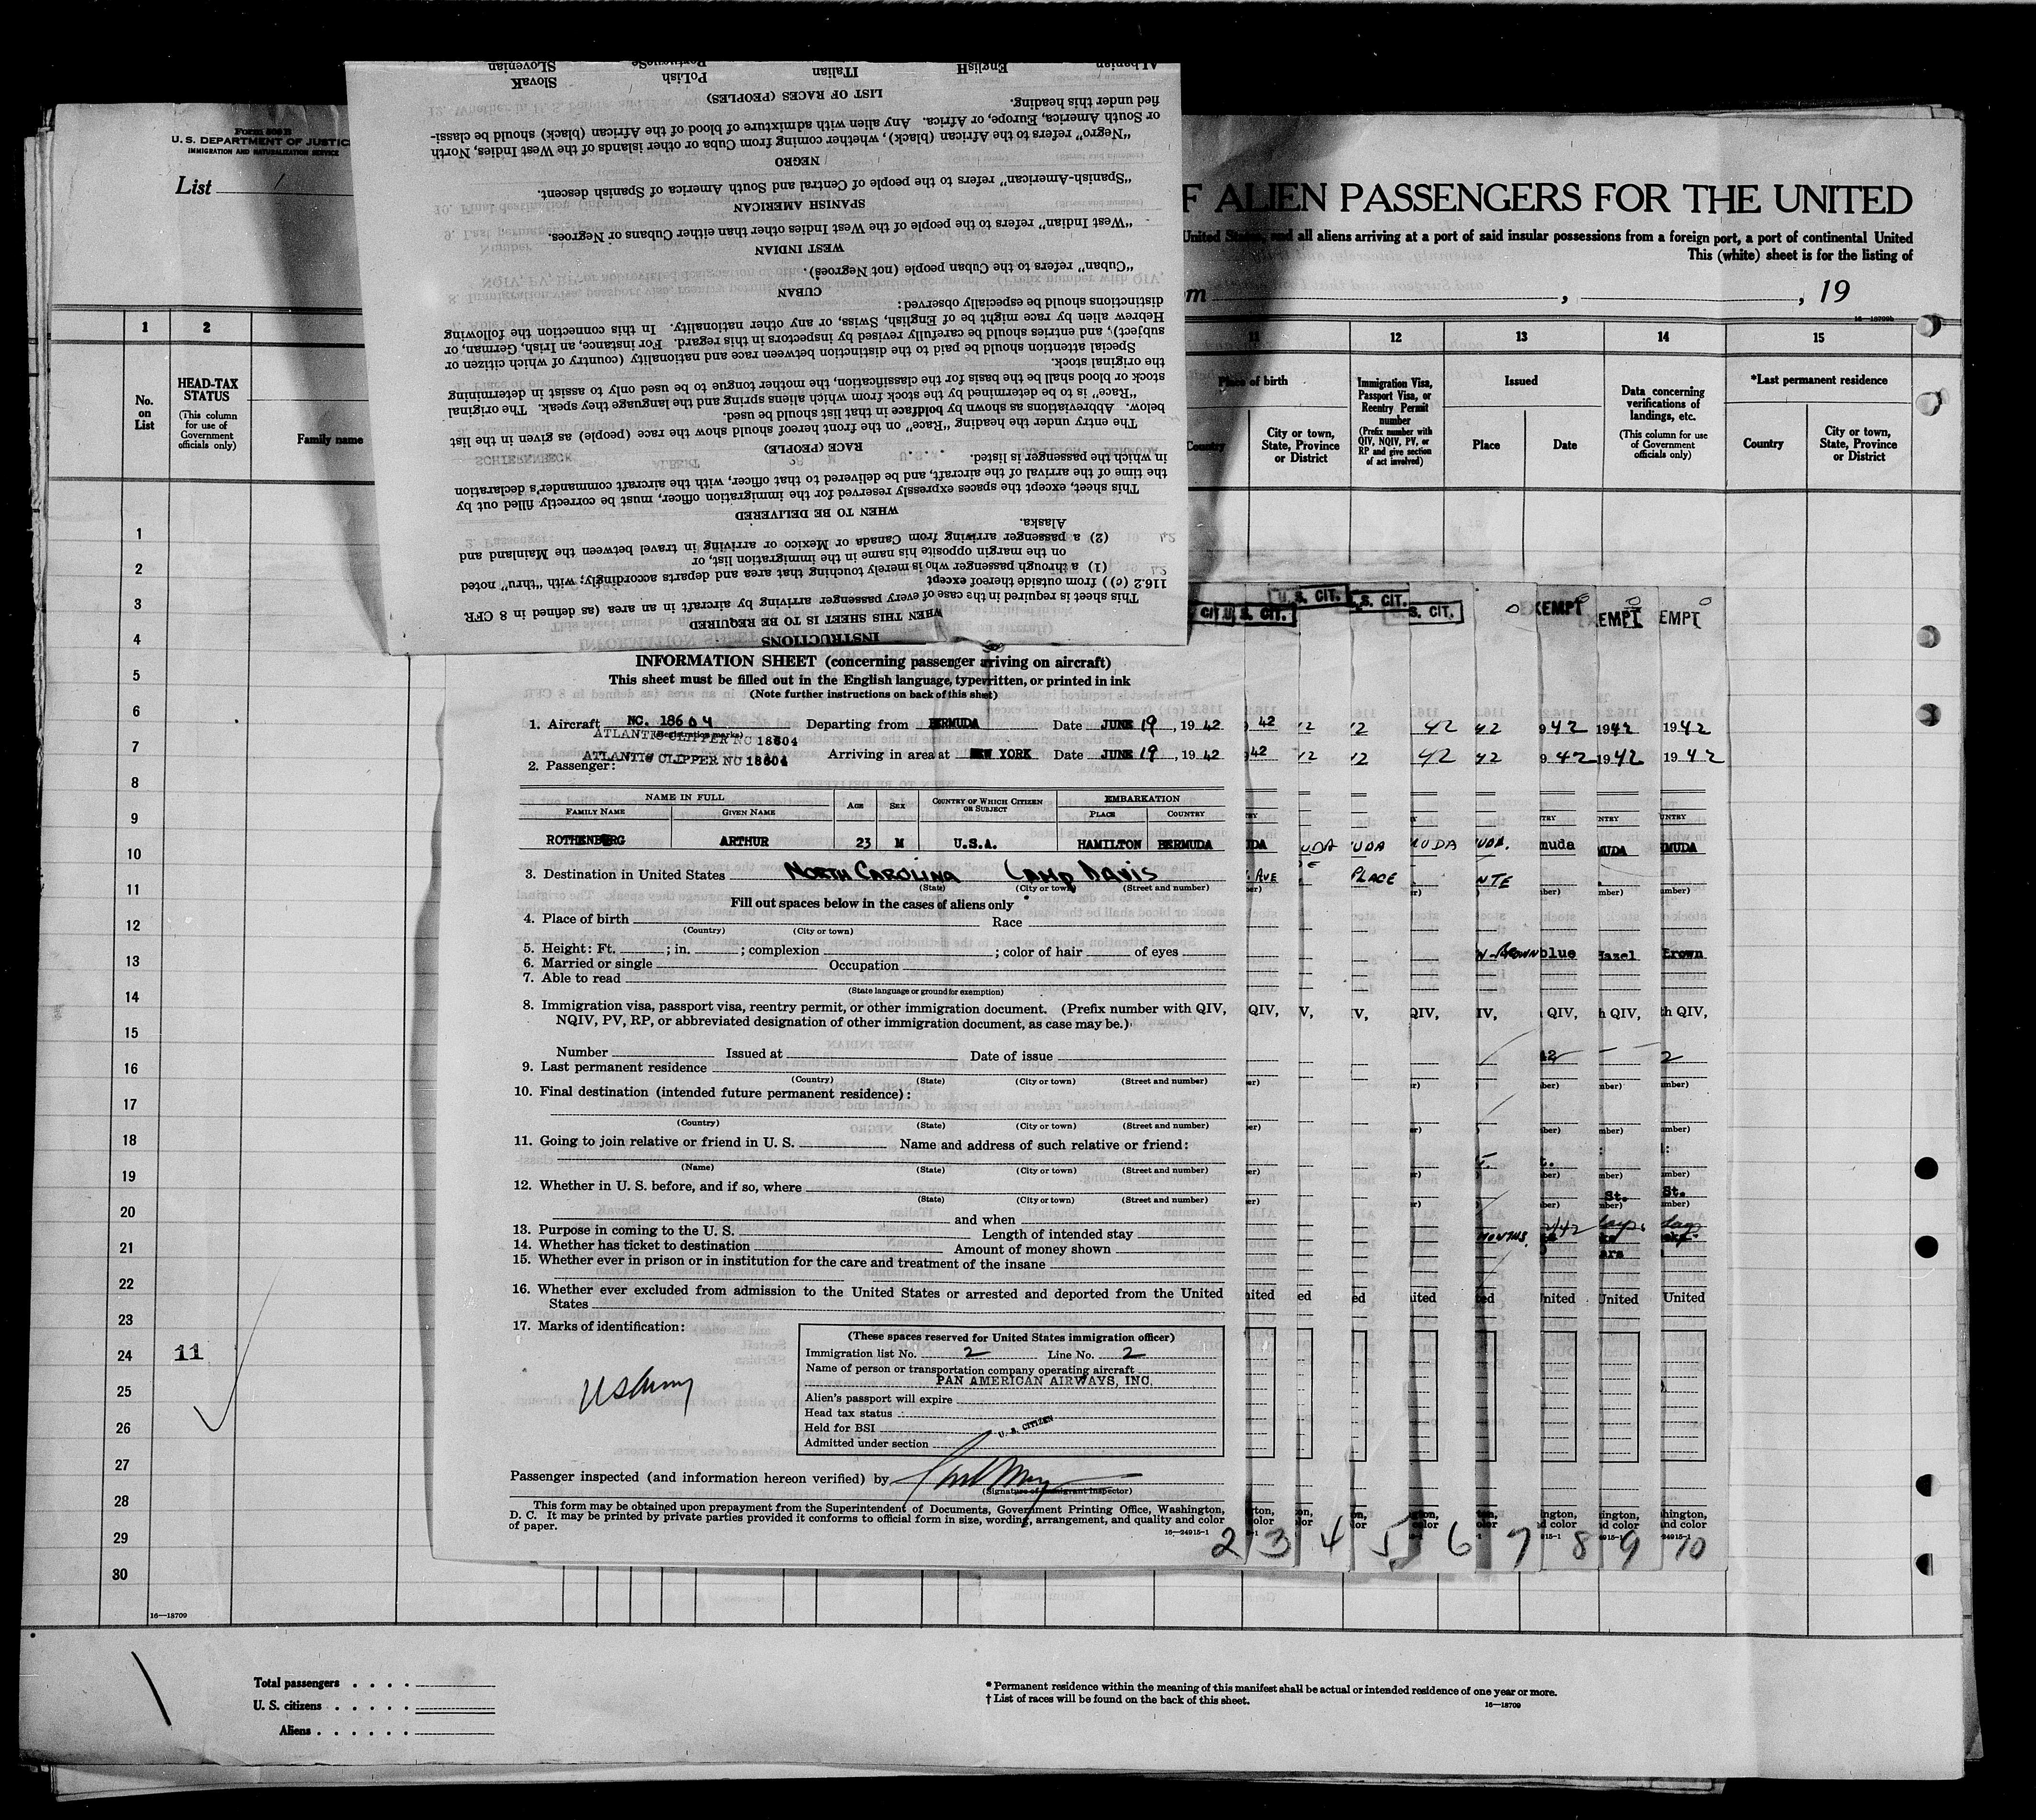 Form 500 B
U. S. DEPARTMENT OF JUSTIC
IMMIGRATION AND NATURALIZATION SERVICE
List 1
F ALIEN PASSENGERS FOR THE UNITED
United States, and all aliens arriving at a port of said insular possessions from a foreign port, a port of continental United
This (white) sheet is for the listing of
m , , 19
16—18709b
1 2 11 12 13 14 15
No. on List
HEAD-TAX STATUS
(This column for use of Government officials only)
Family name
Place of birth
Country
City or town, State, Province or District
Immigration Visa, Passport Visa, or Reentry Permit number
(Prefix number with QIV, NQIV, PV, or RP and give section of act involved)
Issued
Place
Date
Data concerning verifications of landings, etc.
(This column for use of Government officials only)
*Last permanent residence
Country
City or town, State, Province or District
INSTRUCTIONS
WHEN THIS SHEET IS TO BE REQUIRED
This sheet is required in the case of every passenger arriving by aircraft in an area (as defined in 8 CFR
116.2 (c)) from outside thereof except
(1) a through passenger who is merely touching that area and departs accordingly; with "thru" noted
on the margin opposite his name in the immigration list, or
(2) a passenger arriving from Canada or Mexico or arriving in travel between the Mainland and
Alaska.
WHEN TO BE DELIVERED
This sheet, except the spaces expressly reserved for the immigration officer, must be correctly filled out by
the time of the arrival of the aircraft, and be delivered to that officer, with the aircraft commander's declaration
in which the passenger is listed.
RACE (PEOPLE)
The entry under the heading "Race" on the front hereof should show the race (people) as given in the list
below. Abbreviations as shown by boldface in that list should be used.
"Race" is to be determined by the stock from which aliens spring and the language they speak. The original
stock or blood shall be the basis for the classification, the mother tongue to be used only to assist in determining
the original stock.
Special attention should be paid to the distinction between race and nationality (country of which citizen or
subject), and entries should be carefully revised by inspectors in this regard. For instance, an Irish, German, or
Hebrew alien by race might be of English, Swiss, or any other nationality. In this connection the following
distinctions should be especially observed:
CUBAN
"Cuban" refers to the Cuban people (not Negroes).
WEST INDIAN
"West Indian" refers to the people of the West Indies other than either Cubans or Negroes.
SPANISH AMERICAN
"Spanish-American" refers to the people of Central and South America of Spanish descent.
NEGRO
"Negro" refers to the African (black), whether coming from Cuba or other islands of the West Indies, North
or South America, Europe, or Africa. Any alien with admixture of blood of the African (black) should be classi-
fied under this heading.
LIST OF RACES (PEOPLES)
Albanian EnglisH ITalian PoLish SlovaK
PortugueSe SLovenian
SCHIERENBECK ALBERT 29 M U.S.A.
CIT. U.S. CIT. U.S. CIT. S. CIT. S. CIT. EXEMPT EMPT EMPT
INFORMATION SHEET (concerning passenger arriving on aircraft)
This sheet must be filled out in the English language, typewritten, or printed in ink
(Note further instructions on back of this sheet)
1. Aircraft NC. 18604 Departing from BERMUDA Date JUNE 19, 1942
(Registration marks)
ATLANTIC CLIPPER NC 18604
ATLANTIC CLIPPER NC 18604 Arriving in area at NEW YORK Date JUNE 19, 1942
2. Passenger:
NAME IN FULL
FAMILY NAME GIVEN NAME AGE SEX COUNTRY OF WHICH CITIZEN OR SUBJECT EMBARKATION
PLACE COUNTRY
ROTHENBERG ARTHUR 23 M U.S.A. HAMILTON BERMUDA
3. Destination in United States NORTH CAROLINA CAMP DAVIS
(State) (City or town) (Street and number)
Fill out spaces below in the cases of aliens only
4. Place of birth Race
(Country) (City or town)
5. Height: Ft. ; in. ; complexion ; color of hair of eyes
6. Married or single Occupation
7. Able to read
(State language or ground for exemption)
8. Immigration visa, passport visa, reentry permit, or other immigration document. (Prefix number with QIV,
NQIV, PV, RP, or abbreviated designation of other immigration document, as case may be.)
Number Issued at Date of issue
9. Last permanent residence
(Country) (State) (City or town) (Street and number)
10. Final destination (intended future permanent residence):
(Country) (State) (City or town) (Street and number)
11. Going to join relative or friend in U. S. Name and address of such relative or friend:
(Name) (State) (City or town) (Street and number)
12. Whether in U. S. before, and if so, where
(State) (City or town) (Street and number)
and when
13. Purpose in coming to the U. S. Length of intended stay
14. Whether has ticket to destination Amount of money shown
15. Whether ever in prison or in institution for the care and treatment of the insane
16. Whether ever excluded from admission to the United States or arrested and deported from the United
States
17. Marks of identification:
US Army
(These spaces reserved for United States immigration officer)
Immigration list No. 2 Line No. 2
Name of person or transportation company operating aircraft
PAN AMERICAN AIRWAYS, INC.
Alien's passport will expire
Head tax status
Held for BSI
U. S. CITIZEN
Admitted under section
Passenger inspected (and information hereon verified) by
(Signature of immigrant inspector)
This form may be obtained upon prepayment from the Superintendent of Documents, Government Printing Office, Washington,
D. C. It may be printed by private parties provided it conforms to official form in size, wording, arrangement, and quality and color
of paper.
16—24915-1
2 3 4 5 6 7 8 9 10
1
2
3
4
5
6
7
8
9
10
11
12
13
14
15
16
17
18
19
20
21
22
23
24 11
25
26
27
28
29
30
16—18709
Total passengers . . . .
U. S. citizens . . . . .
Aliens . . . . . .
* Permanent residence within the meaning of this manifest shall be actual or intended residence of one year or more.
† List of races will be found on the back of this sheet.
16—18709